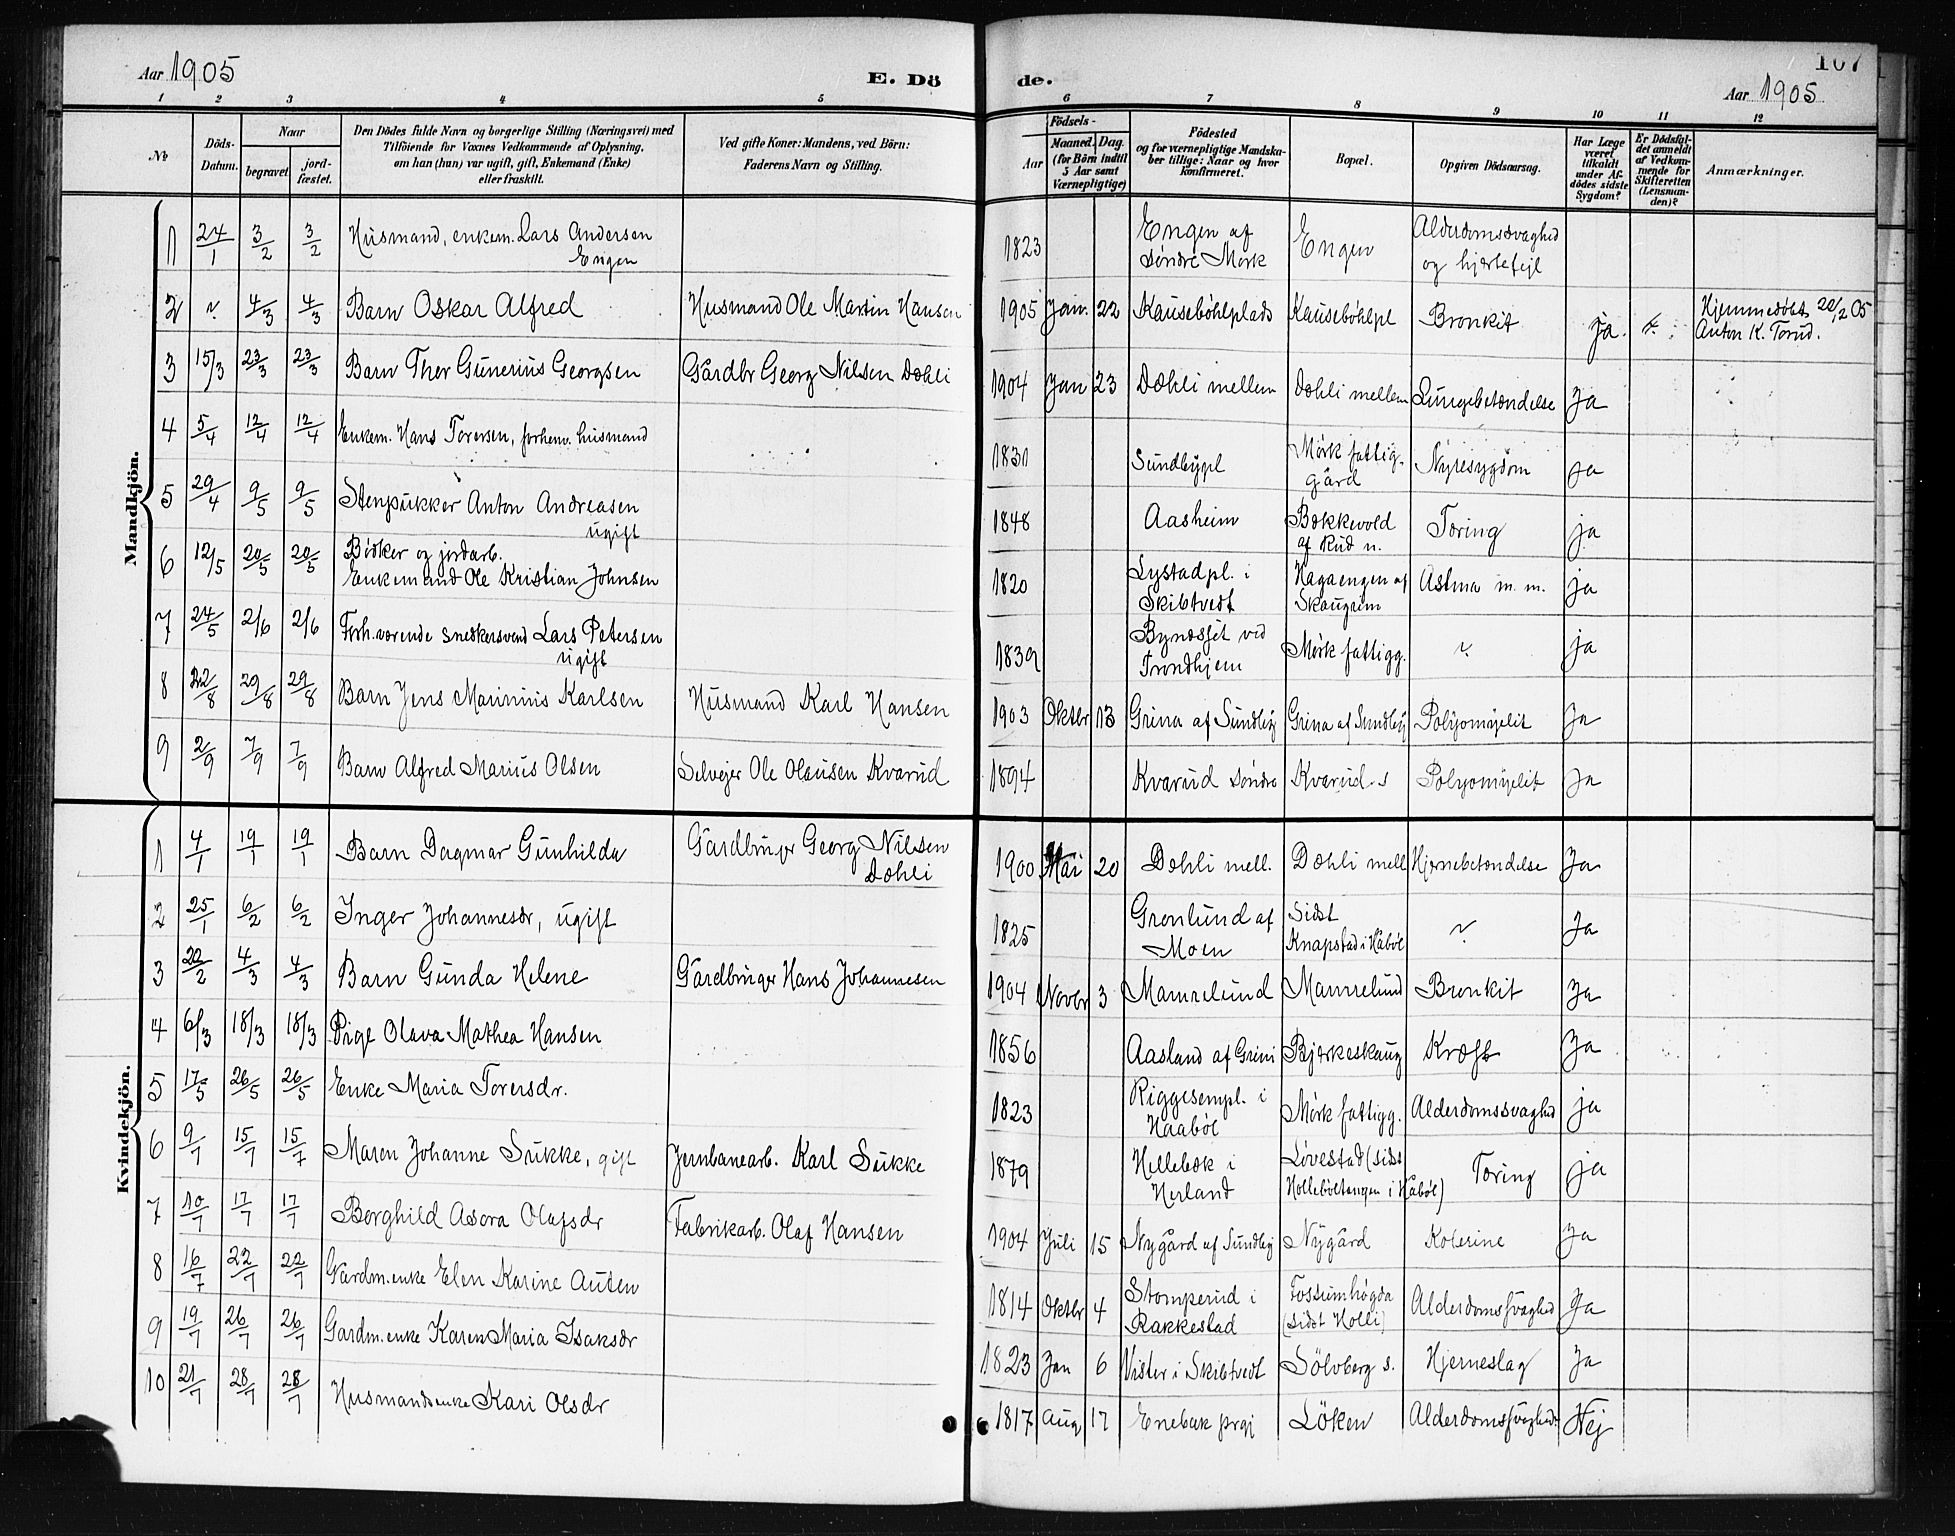 Aar 1905
E. Dö
de.
107
Aar 1905
1 2 3 4 5
6 7 8 9 10 11 12
No
Döds-Datum.
Naar
begravet
jord-fæstet.
Den Dödes fulde Navn og borgerlige Stilling (Næringsvei) med
Tilföiende for Voxnes Vedkommende af Oplysning,
om han (hun) var ugift, gift, Enkemand (Enke)
eller fraskilt.
Ved gifte Koner: Mandens, ved Börn:
Faderens Navn og Stilling.
Födsels-
Aar
Maaned. Dag.
(for Börn indtil
5 Aar samt
Værnepligtige)
Födested
og for værnepligtige Mandska-
ber tillige: Naar og hvor
konfirmeret.
Bopæl.
Opgiven Dödsaarsag.
Har Læge
været
tilkaldt
under Af-
dödes sidste
Sygdom?
Er Dödsfal-
det anmeldt
af Vedkom-
mende for
Skifteretten
(Lensman-
den)?
Anmærkninger.
Mandkjön.
1 24/1 3/2 3/2 Husmand, enkem. Lars Andersen Engen 1823 Engen af Søndre Mørk Engen Alderdomssvaghed og hjertefejl
2 " 4/3 4/3 Barn Oskar Alfred Husmand Ole Martin Hansen 1905 Jan. 22 Kausebøhlplads Kausebøhlpl Bronkit ja Hjemmedøbt 22/2 05 Anton K. Torud.
3 15/3 23/3 23/3 Barn Thor Gunerius Georgsen Gårdbr Georg Nilsen Dæhli 1904 Jan 23 Dæhli mellem Dæhli mellem Lungebetændelse Ja
4 5/4 12/4 12/4 Enkem. Hans Torersen, forhenv. husmand 1831 Sundbypl Mørk fattig-gård Nyresygdom ja
5 29/4 9/5 9/5 Stenpukker Anton Andreasen ugift 1848 Aasheim Bækkevold af Rud n. Tæring ja
6 12/5 20/5 20/5 Bødker og jordarb. Enkemand Ole Kristian Johnsen 1820 Lystadpl. i Skibtvedt Hagaengen af Skaugum Astma m. m. ja
7 24/5 2/6 2/6 Forh.værende snedkersvend Lars Petersen ugift 1839 Bynæsset ved Trondhjem Mørk fattigg. " ja
8 22/8 29/8 29/8 Barn Jens Marinius Karlsen Husmand Karl Hansen 1903 Oktbr 13 Grina af Sundby Grina af Sundby Polyomyelit Ja
9 2/9 7/9 7/9 Barn Alfred Marius Olsen Selvejer Ole Olausen Kvarud 1894 Kvarud søndre Kvarud s Polyomyelit Ja
Kvindekjön.
1 4/1 19/1 19/1 Barn Dagmar Gunhilda Gårdbruger Georg Nilsen Dæhli 1900 Mai 20 Dæhli mell. Dæhli mell Hjernebetændelse Ja
2 25/1 6/2 6/2 Inger Johannesdr, ugift 1825 Grønlund af Moen Sidst Knapstad i Håbøl " Ja
3 20/2 4/3 4/3 Barn Gunda Helene Gårdbruger Hans Johannesen 1904 Novbr 3 Mamrelund Mamrelund Bronkit Ja
4 6/3 18/3 18/3 Pige Olava Mathea Hansen 1856 Aasland af Grini Bjerkeskaug Kræft Ja
5 17/5 26/5 26/5 Enke Maria Torersdr. 1823 Riggesempl. i Haabøl Mørk fattigg. Alderdomssvaghed ja
6 9/7 15/7 15/7 Maren Johanne Sukke, gift Jernbanearb. Karl Sukke 1879 Hellebæk i Herland Løvestad (sidst Holleböltangen i Håbøl) Tæring ja
7 10/7 17/7 17/7 Borghild Asora Olafsdr Fabrikarb. Olaf Hansen 1904 Juli 15 Nygård af Sundby Nygård Kolerine Ja
8 16/7 22/7 22/7 Gårdm.enke Elen Karine Auten 1814 Oktbr 4 Stomperud i Rakkestad Fossumhøgda (sidst Holli) Alderdomssvaghed Ja
9 19/7 26/7 26/7 Gardm.enke Karen Maria Isaksdr 1823 Jan 6 Vister i Skibtvedt Sölvberg s. Hjerneslag Ja
10 21/7 28/7 28/7 Husmandsenke Kari Olsdr 1817 Aug 17 Enebak prgj Löken Alderdomssvaghed Nej